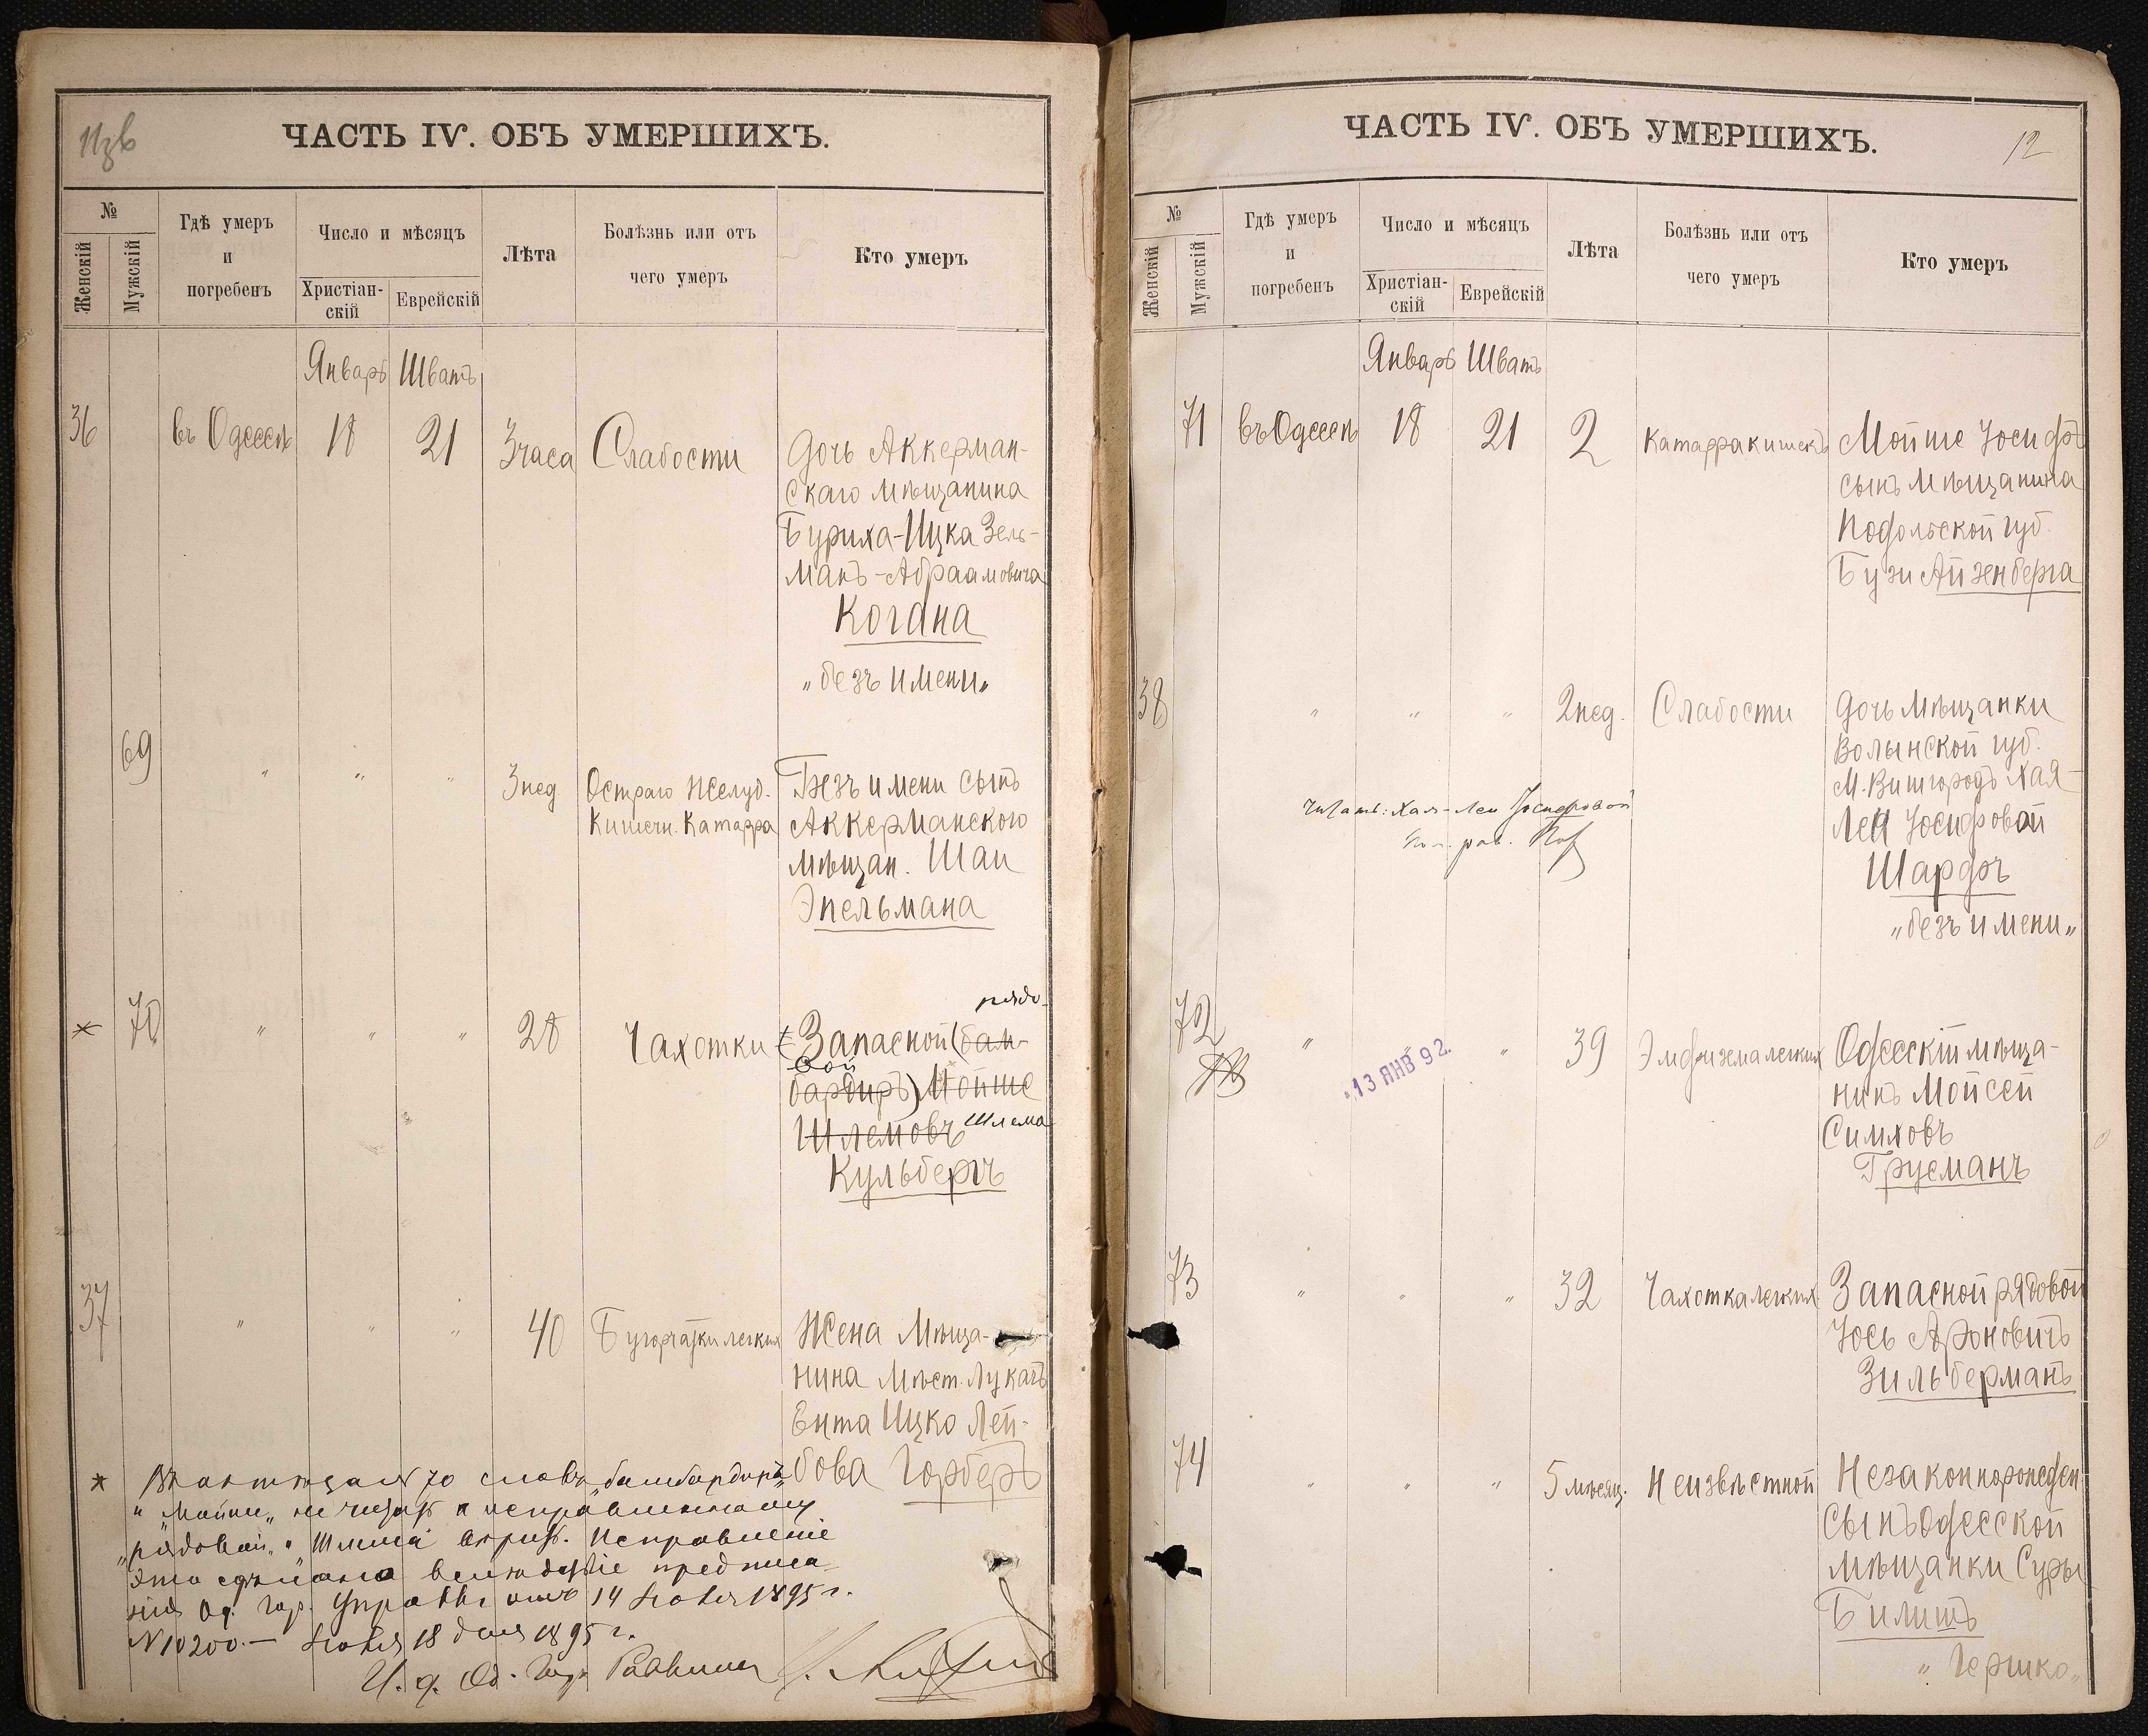 Изв
ЧАСТЬ IV. ОБЪ УМЕРШИХЪ.
№
Женскій
Мужскій
Гдѣ умеръ
и
погребенъ
Число и мѣсяцъ
Христіан-
скій
Еврейскій
Лѣта
Болѣзнь или отъ
чего умеръ
Кто умеръ
Январь Шватъ
36 въ Одессѣ 18 21 3 часа Слабости Дочь Аккерман-
скаго мѣщанина
Буриха-Ицка Зель-
манъ-Абраамовича
Когана
„безъ имени„
69 " " " 3 нед Остраго Желуд. Безъ имени сынъ
Кишечн. Катарра Аккерманского
мѣщан. Шаи
Эпельмана
рядо-
* 70 " " " 28 Чахотки Запасной (бам-
вой
бардиръ) Мойше
Шлемовъ Шлема
Кульбергъ
37 " " " 40 Бугорчатки легких Жена Мѣща-
нина Мѣст. Лукачъ
Ента Ицко Лей-
бова Гарберъ
* Въ актѣ 70 слова „бамбардиръ„
и „Мойше„ не читать а исправленному
„рядовой„ и Шлема вѣрить. Исправленіе
это сдѣлано вслѣдствіе предписа-
нія Од. Гор. Управы отъ 14 1895 г.
№ 10200. — 18 дня 1895 г.
И. д. Од. Гор. Раввина
ЧАСТЬ IV. ОБЪ УМЕРШИХЪ.
12
№
Женскій
Мужскій
Гдѣ умеръ
и
погребенъ
Число и мѣсяцъ
Христіан-
скій
Еврейскій
Лѣта
Болѣзнь или отъ
чего умеръ
Кто умеръ
Январь Шватъ
71 въ Одессѣ 18 21 2 Катарра кишекъ Мойше Іосифъ
сынъ мѣщанина
Подольской губ.
Бузи Айзенберга
38 " " " 2 нед. Слабости Дочь мѣщанки
Волынской губ.
М. Вишгородъ Хая-
Леи Іосифовой
Шардъ
„безъ имени„
Читать: Хая-Леи Іосифовой
72 " " 39 Эмфизема легких Одесскій мѣща-
нинъ Мойсей
Симховъ
Грусманъ
13 ЯНВ 92.
73 " " " 32 Чахотка легких Запасной рядовой
Іось Ароновичъ
Зильберманъ
74 " " " 5 мѣсяц. Неизвѣстной Незаконнорожден.
сынъ Одесской
мѣщанки Суры
Билитъ
„Гершко„